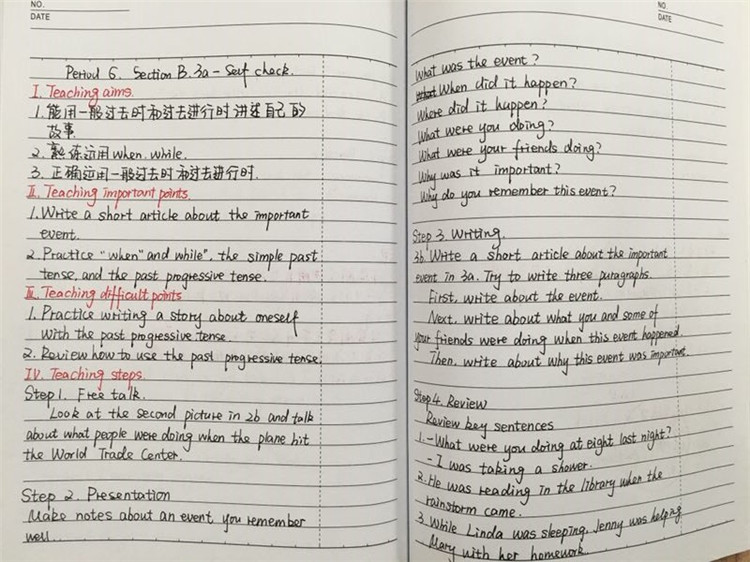 NO.
DATE
Period 6. Section B.3a - Self check.
I. Teaching aims.
1.能用一般过去时和过去进行时讲述自己的
故事.
2. 熟练运用when. while.
3. 正确运用一般过去时和过去进行时.
II. Teaching important points.
1.Write a short article about the important
event.
2.Practice "when" and while", the simple past
tense, and the past progressive tense.
III. Teaching difficult points
1. Practice writing a story about oneself
with the past progressive tense.
2. Review how to use the past progressive tense
IV. Teaching steps.
Step 1. Free talk.
Look at the second picture in 2b and talk
about what people were doing when the plane hit
the World Trade Center.
Step 2. Presentation
Make notes about an event you remember
well.
NO.
DATE
What was the event?
When did it happen?
Where did it happen?
What were you doing?
What were your friends doing?
Why was it important?
Why do you remember this event?
Step 3. Writing.
3b. Write a short article about the important
event in 3a. Try to write three paragraphs.
First, write about the event.
Next, write about what you and some of
your friends were doing when this event happened.
Then, write about why this event was important.
Step 4. Review
Review key sentences
1. - What were you doing at eight last night?
- I was taking a shower.
2. He was reading in the library when the
rainstorm came.
3. While Linda was sleeping, Jenny was helping
Mary with her homework.